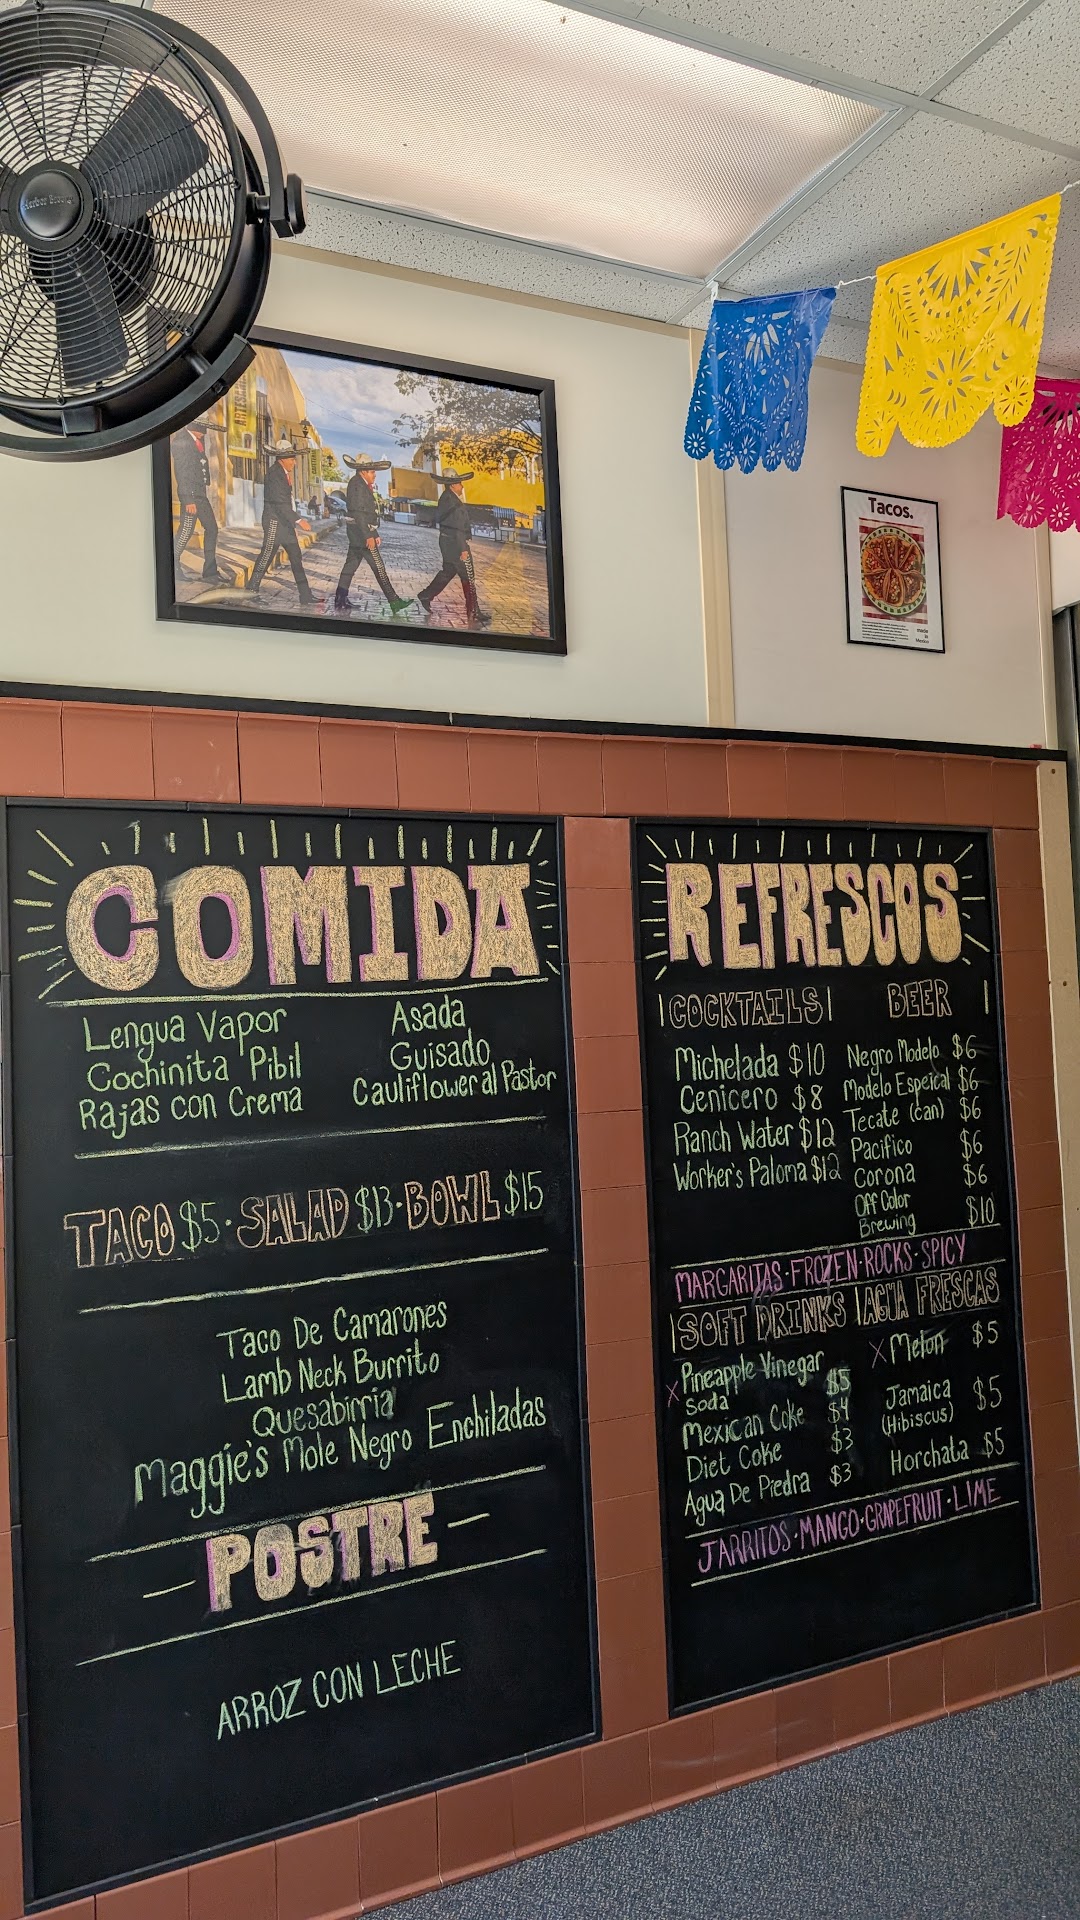 Tacos.
made
in
Mexico
COMIDA
Lengua Vapor
Cochinita Pibil
Rajas con Crema
Asada
Guisado
Cauliflower al Pastor
TACO $5 · SALAD $13 · BOWL $15
Taco De Camarones
Lamb Neck Burrito
Quesabirria
Maggie's Mole Negro Enchiladas
- POSTRE -
ARROZ CON LECHE
REFRESCOS
COCKTAILS
Michelada $10
Cenicero $8
Ranch Water $12
Worker's Paloma $12
BEER
Negro Modelo $6
Modelo Espeical $6
Tecate (can) $6
Pacifico $6
Corona $6
Off Color
Brewing $10
MARGARITAS · FROZEN · ROCKS · SPICY
SOFT DRINKS
X Pineapple Vinegar
Soda $5
Mexican Coke $4
Diet Coke $3
Agua De Piedra $3
AGUA FRESCAS
X Melon $5
Jamaica
(Hibiscus) $5
Horchata $5
JARRITOS · MANGO · GRAPEFRUIT · LIME